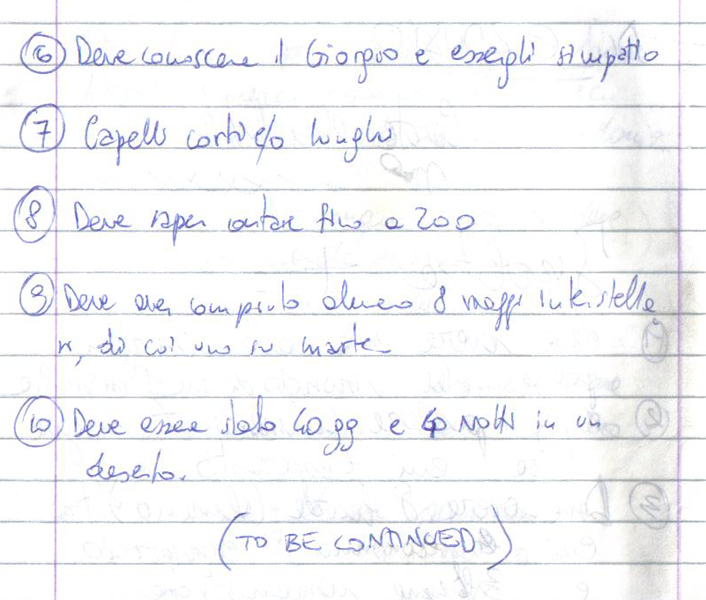 ⑥ Deve conoscere il Giorgio e essergli simpatico
⑦ Capelli corti e/o lunghi
⑧ Deve saper contare fino a 200
⑨ Deve aver compiuto almeno 8 viaggi interstella
ri, di cui uno su marte
⑩ Deve essere stato 40 gg e 40 notti in un
deserto.
(TO BE CONTINUED)